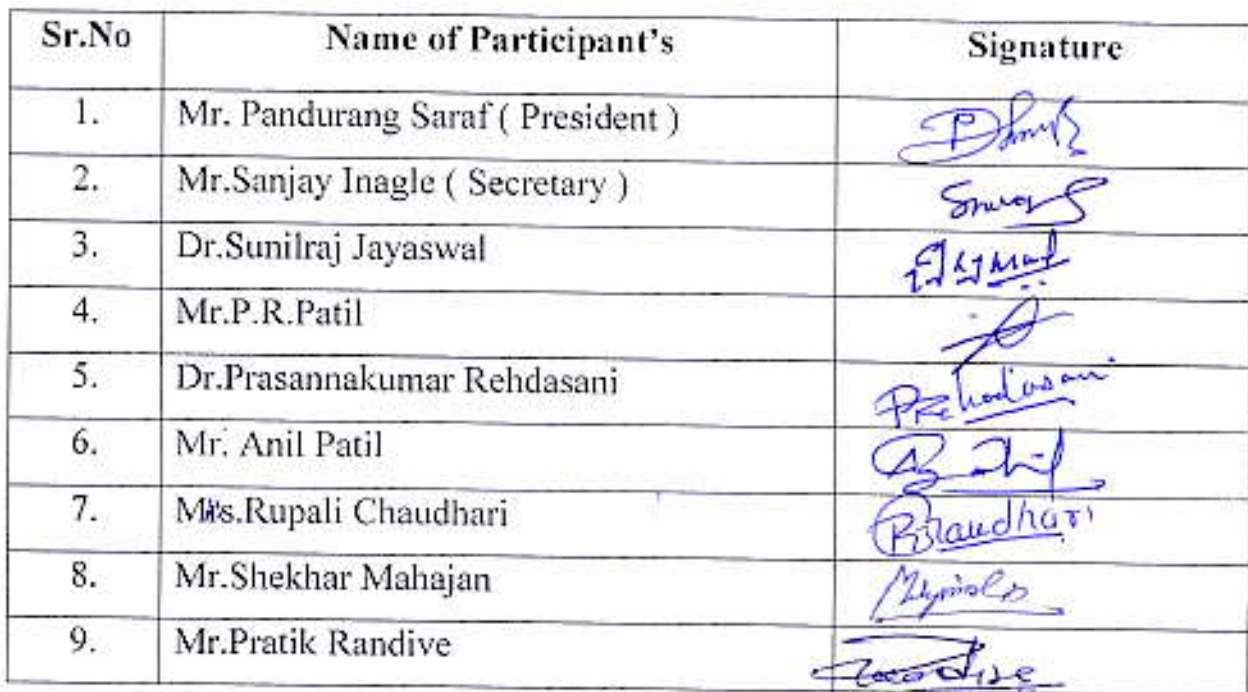 Sr.No Name of Participant's Signature
1. Mr. Pandurang Saraf ( President )
2. Mr.Sanjay Inagle ( Secretary )
3. Dr.Sunilraj Jayaswal
4. Mr.P.R.Patil
5. Dr.Prasannakumar Rehdasani PRehadasani
6. Mr. Anil Patil
7. Mrs.Rupali Chaudhari
8. Mr.Shekhar Mahajan
9. Mr.Pratik Randive